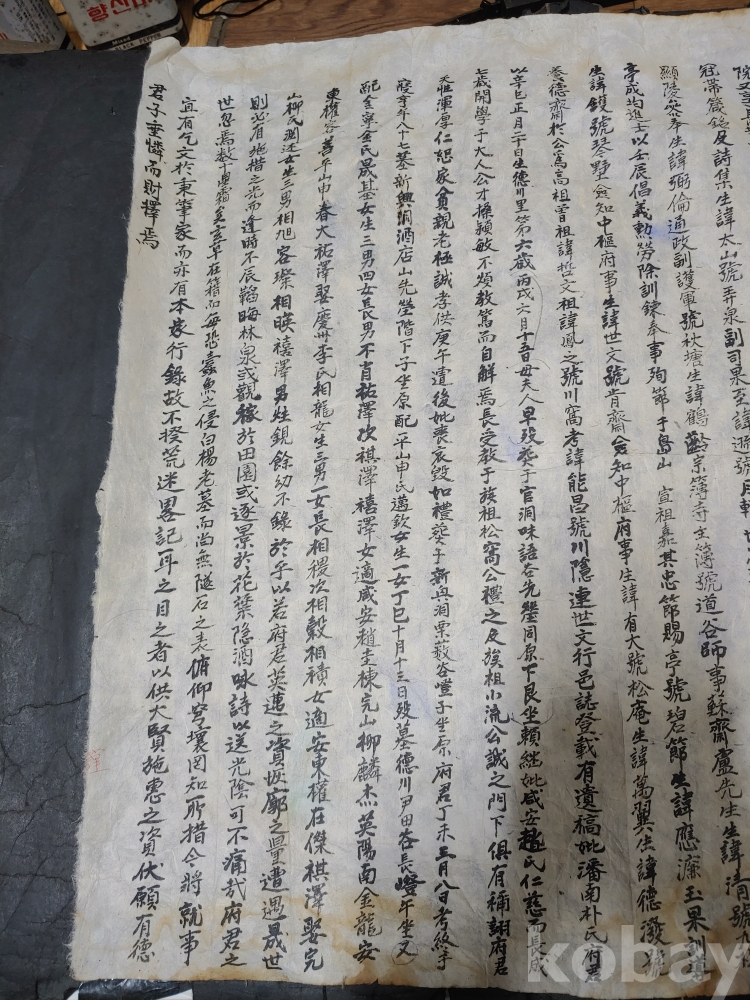 冠帶箴銘及詩集生諱太山號弄泉副司果至諱遜號月軒
顯陵參奉生諱弼倫通政副護軍號秋塘生諱鶴齡宗簿寺主簿號道谷師事蘇齋盧先生生諱清號
亭成均進士以壬辰倡義勳勞除訓鍊奉事殉節于島山 宣祖嘉其忠節賜亭號碧節生諱應濂玉果訓導
生諱鑊號琴墅僉知中樞府事生諱世文號肯齋僉知中樞府事生諱有大號松庵生諱萬翼生諱德潑號
養德齋於公爲高祖曾祖諱哲文祖諱鳳之號川窩考諱能昌號川隱連世文行邑誌登載有遺稿妣潘南朴氏府君
以辛巳正月二十日生德川里第六歲丙戌六月十五日母夫人早歿葬于官洞味語谷先塋同原下艮坐賴継妣咸安趙氏仁慈而長成
七歲開學于大人公才操穎敏不煩敎篤而自解焉長受敎于族祖松窩公禮之及族祖小流公誠之門下俱有補詡府君
天性渾厚仁恕家貧親老極誠孝供庚午遭後妣喪哀毀如禮葬于新興洞栗薮谷嶝子坐原府君丁未三月八日考終于
寢享年八十七墓新興洞酒店山先塋階下子坐原配平山申氏邁欽女生一女丁巳十月十三日歿墓德川尹田谷長嶝午坐又
配金寧金氏晟基女生三男四女長男不肖祐澤次祺澤禧澤女適咸安趙圭棟完山柳麟杰英陽南金龍安
東權容善平山申春大祐澤娶慶州李氏相龍女生三男一女長相稷次相穀相積女適安東權在傑祺澤娶完
山柳氏淵述女生三男相旭容璨相暎禧澤男姓鋧餘幼不錄於乎以若府君英邁之資恢廓之量遭遇晟世
則必有施措之光而逢時不辰韜晦林泉或觀稼於田園或逐景於花葉隐酒咏詩以送光陰可不痛哉府君之
世忽焉數十星霜至言草在簪而每恐蠹魚之侵白楊老墓而尙無隧石之表俯仰穹壤罔知所措今將就事
宜有乞文於秉筆家而亦有本家行錄故不揆荒迷畧記耳之目之者以供大賢施惠之資伏願有德
君子垂憐而財擇焉
kobay
향신미
Mixed
BLACK PEPPER